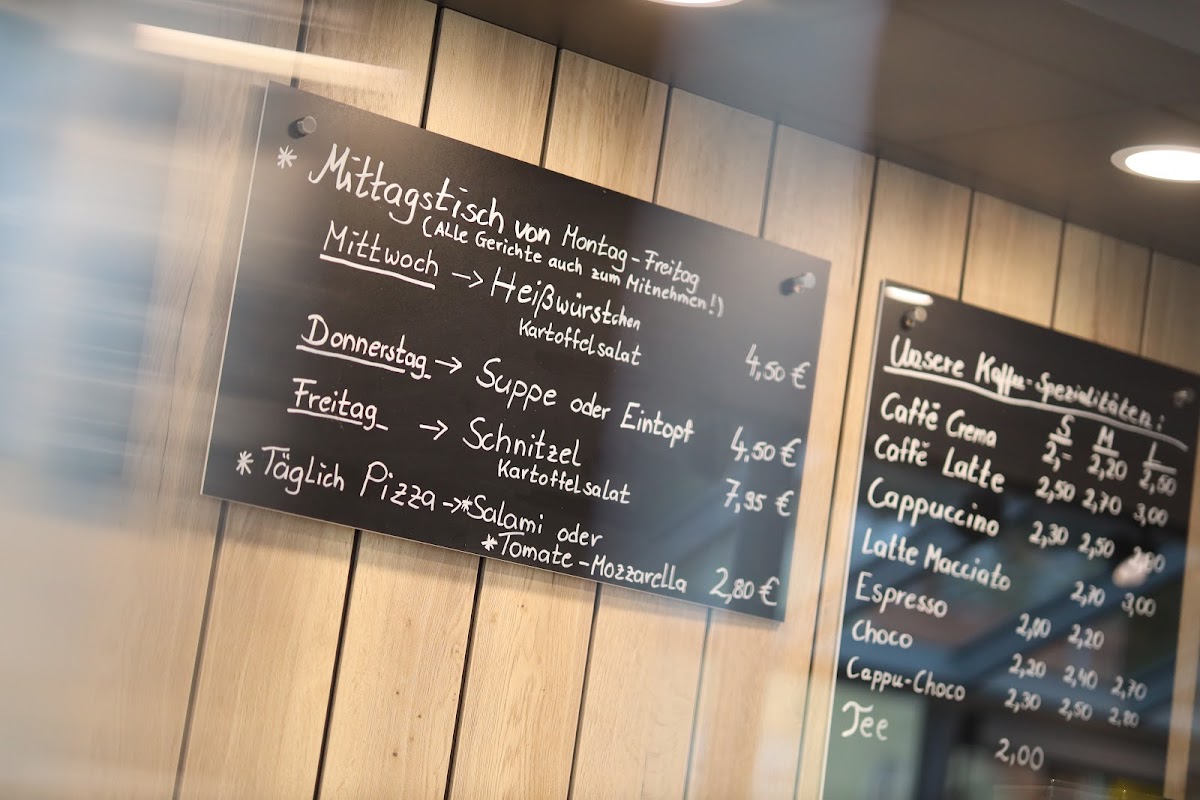 * Mittagstisch von Montag-Freitag
(Alle Gerichte auch zum Mitnehmen!)
Mittwoch -> Heißwürstchen
Kartoffelsalat 4,50 €
Donnerstag -> Suppe oder Eintopf 4,50 €
Freitag -> Schnitzel
Kartoffelsalat 7,95 €
* Täglich Pizza -> *Salami oder
*Tomate-Mozzarella 2,80 €
Unsere Kaffee-Spezialitäten:
S M L
Caffē Crema 2,- 2,20 2,50
Caffē Latte 2,50 2,70 3,00
Cappuccino 2,30 2,50
Latte Macciato 2,70 3,00
Espresso 2,00 2,20
Choco 2,20 2,40 2,70
Cappu-Choco 2,30 2,50 2,80
Tee 2,00